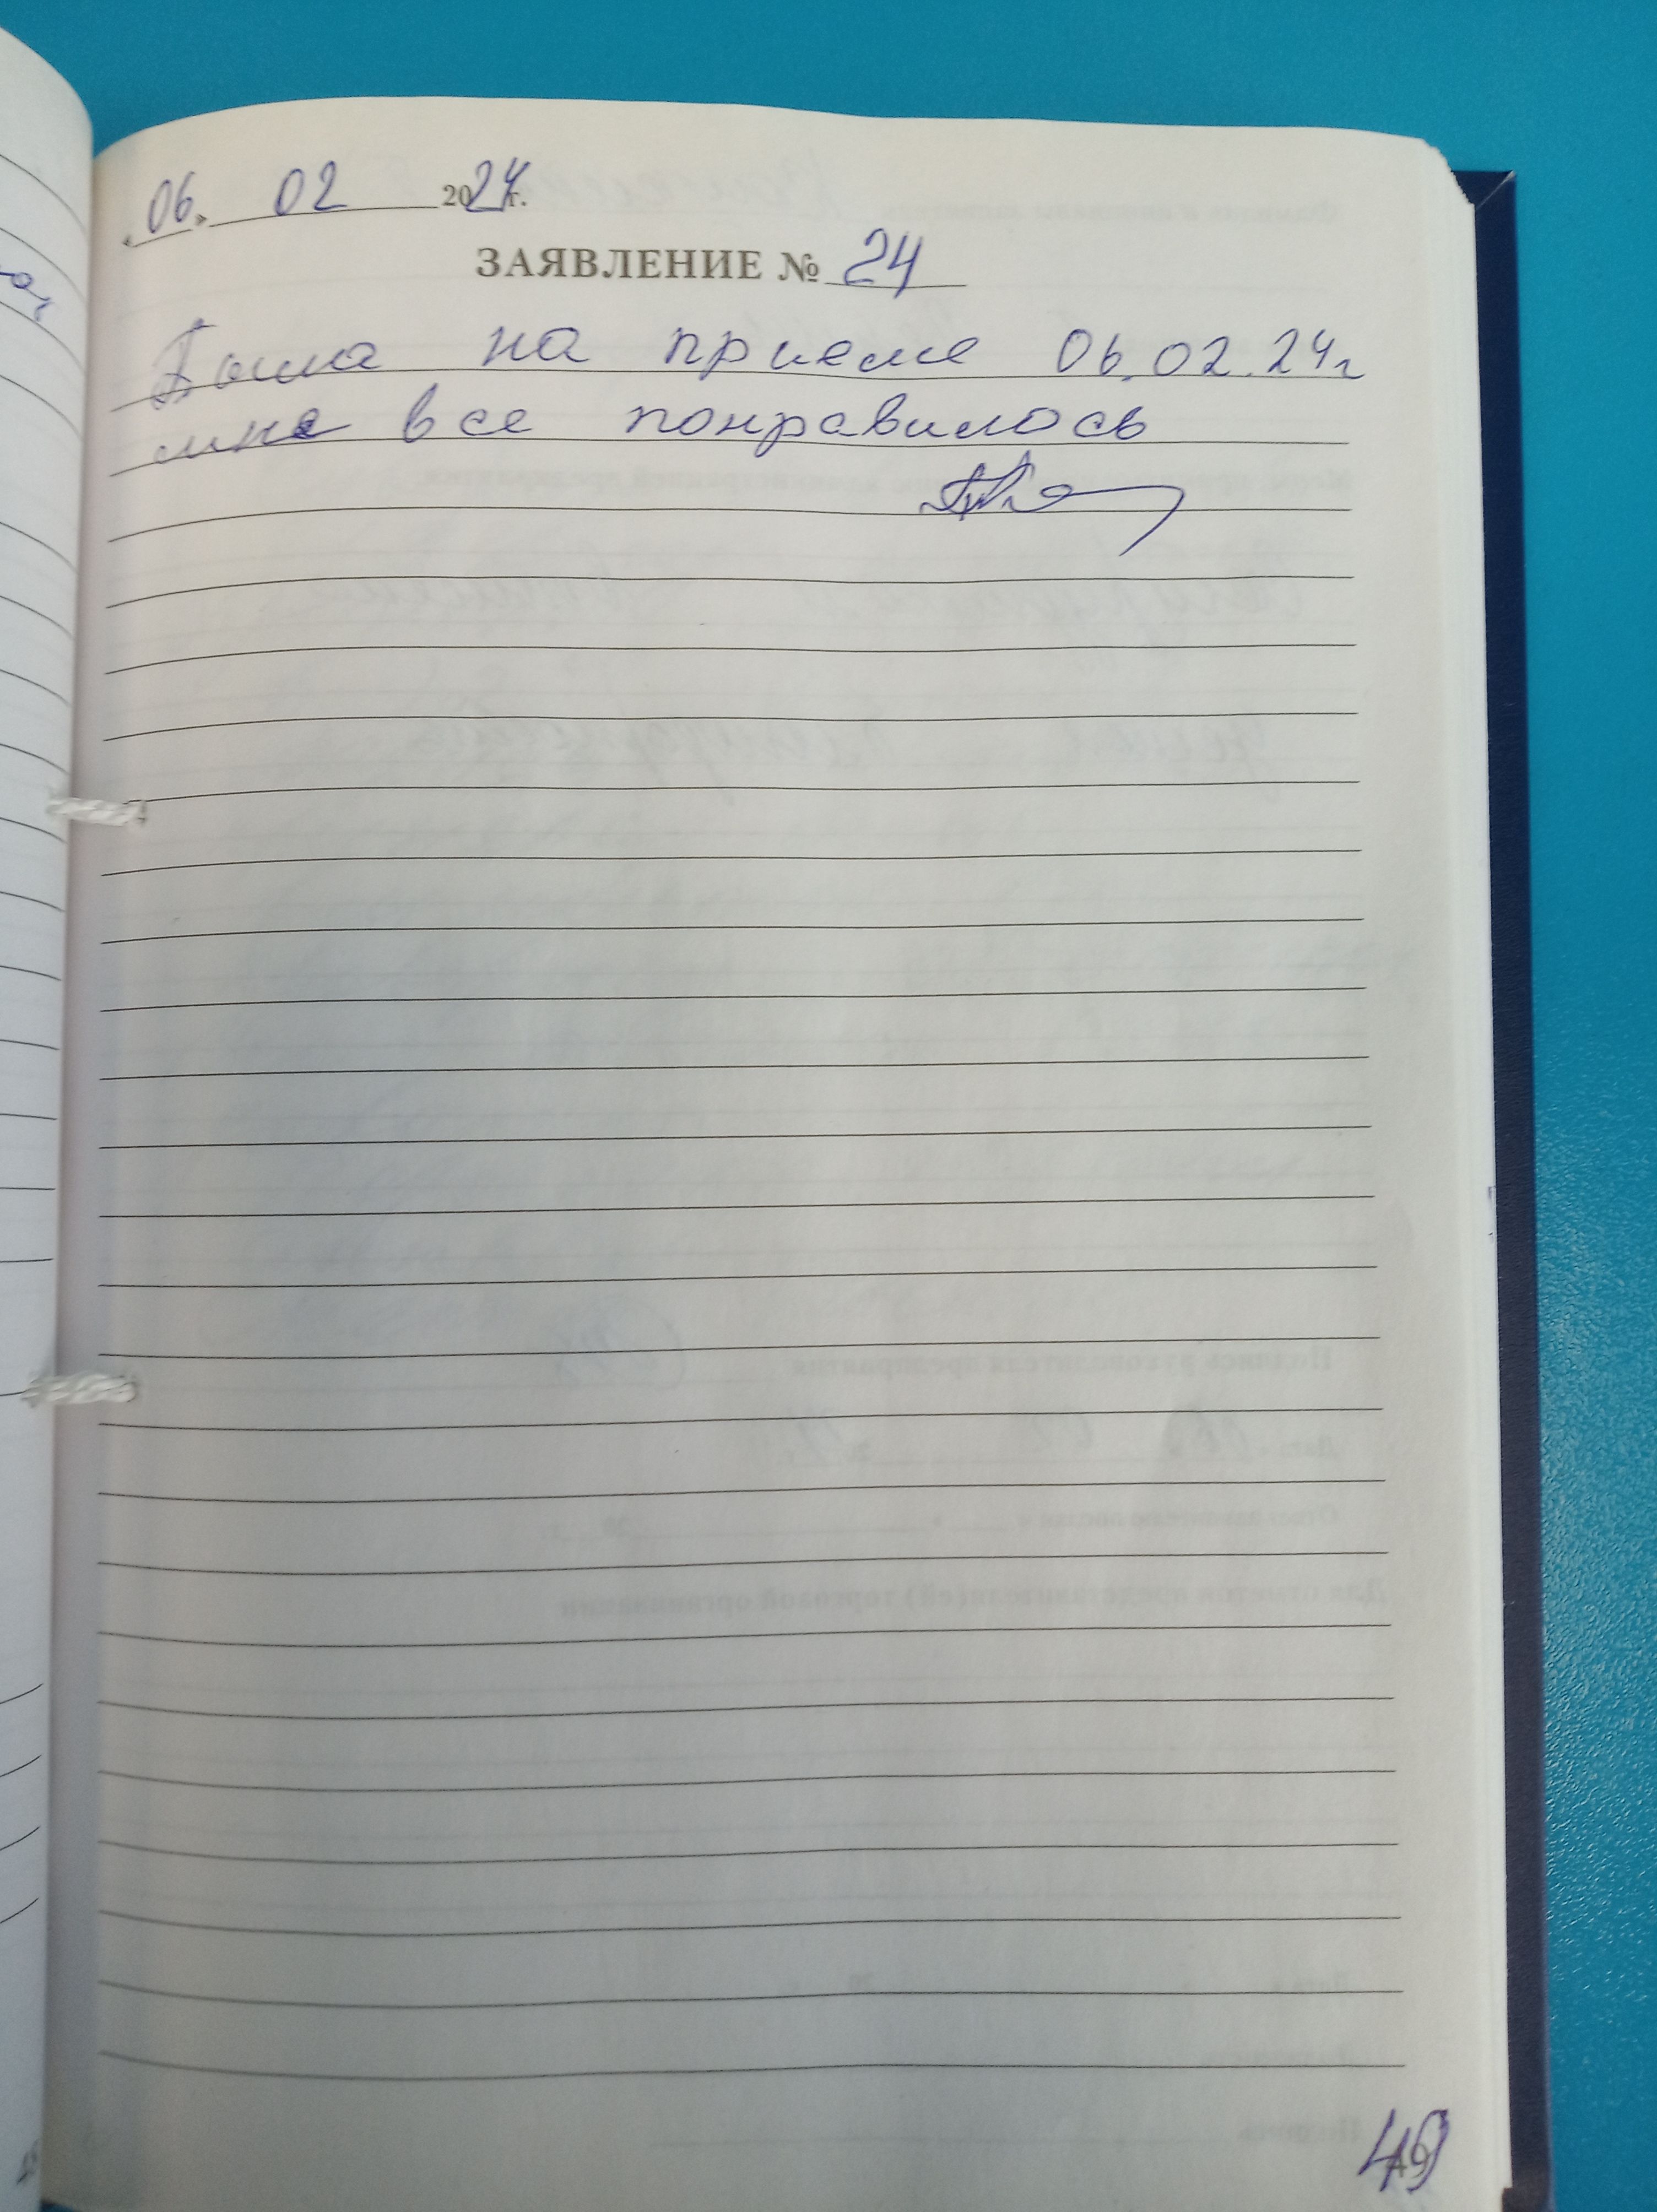 «06» 02 2024г.
ЗАЯВЛЕНИЕ № 24
Была на приеме 06.02.24г
мне все понравилось
49